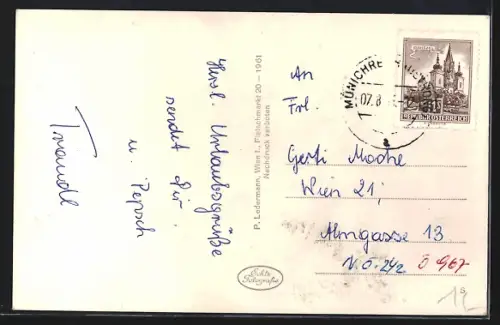 Herzl. Urlaubsgrüße
sendet Dir
u. Pepsch
Traudl
P. Ledermann, Wien I., Fleischmarkt 20 – 1961
Nachdruck verboten
Echte
Fotografie
MÜNICHRE
07.8
a
REPUBLIK ÖSTERREICH
An
Frl.
Gerti Mache
Wien 21,
Almgasse 13
N.Ö. 242 Ö 967